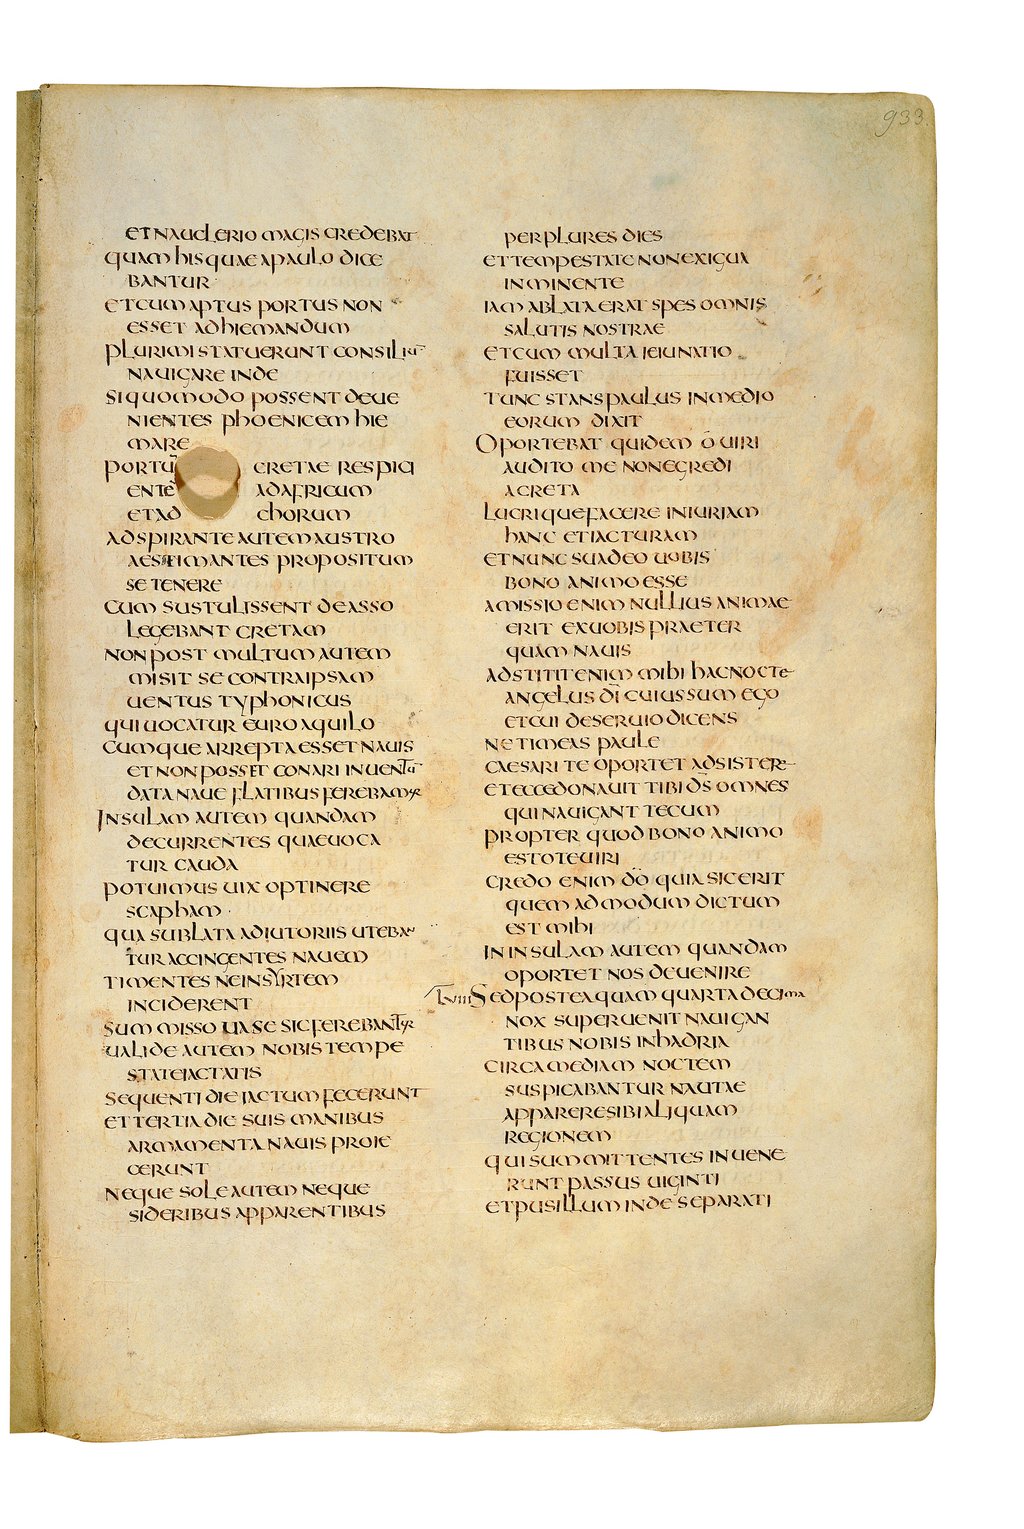 933.
ET NAUCLERIO MAGIS CREDEBAT
QUAM HIS QUAE A PAULO DICE
BANTUR
ET CUM APTUS PORTUS NON
ESSET AD HIEMANDUM
PLURIMI STATUERUNT CONSILIU
NAUIGARE INDE
SI QUO MODO POSSENT DEUE
NIENTES PHOENICEM HIE
MARE
PORTU CRETAE RESPICI
ENTE AD AFRICUM
ET AD CHORUM
ADSPIRANTE AUTEM AUSTRO
AESTIMANTES PROPOSITUM
SE TENERE
CUM SUSTULISSENT DE ASSO
LEGEBANT CRETAM
NON POST MULTUM AUTEM
MISIT SE CONTRA IPSAM
UENTUS TYPHONICUS
QUI UOCATUR EUROAQUILO
CUMQUE ARREPTA ESSET NAUIS
ET NON POSSET CONARI IN UENTU
DATA NAUE FLATIBUS FEREBAMUR
INSULAM AUTEM QUANDAM
DECURRENTES QUAE UOCA
TUR CAUDA
POTUIMUS UIX OPTINERE
SCAPHAM
QUA SUBLATA ADIUTORIIS UTEBAN
TUR ACCINGENTES NAUEM
TIMENTES NE IN SYRTEM
INCIDERENT
SUMMISSO UASE SIC FEREBANTUR
UALIDE AUTEM NOBIS TEMPE
STATE IACTATIS
SEQUENTI DIE IACTUM FECERUNT
ET TERTIA DIE SUIS MANIBUS
ARMAMENTA NAUIS PROIE
CERUNT
NEQUE SOLE AUTEM NEQUE
SIDERIBUS APPARENTIBUS
PER PLURES DIES
ET TEMPESTATE NON EXIGUA
INMINENTE
IAM ABLATA ERAT SPES OMNIS
SALUTIS NOSTRAE
ET CUM MULTA IEIUNATIO
FUISSET
TUNC STANS PAULUS IN MEDIO
EORUM DIXIT
OPORTEBAT QUIDEM O UIRI
AUDITO ME NON EGREDI
A CRETA
LUCRIQUE FACERE INIURIAM
HANC ET IACTURAM
ET NUNC SUADEO UOBIS
BONO ANIMO ESSE
AMISSIO ENIM NULLIUS ANIMAE
ERIT EX UOBIS PRAETER
QUAM NAUIS
ADSTITIT ENIM MIHI HAC NOCTE
ANGELUS DI CUIUS SUM EGO
ET CUI DESERUIO DICENS
NE TIMEAS PAULE
CAESARI TE OPORTET ADSISTERE
ET ECCE DONAUIT TIBI DS OMNES
QUI NAUIGANT TECUM
PROPTER QUOD BONO ANIMO
ESTOTE UIRI
CREDO ENIM DO QUIA SIC ERIT
QUEM AD MODUM DICTUM
EST MIHI
IN INSULAM AUTEM QUANDAM
OPORTET NOS DEUENIRE
SED POSTEAQUAM QUARTA DECIMA
NOX SUPERUENIT NAUIGAN
TIBUS NOBIS IN HADRIA
CIRCA MEDIAM NOCTEM
SUSPICABANTUR NAUTAE
APPARERE SIBI ALIQUAM
REGIONEM
QUI SUMMITTENTES INUENE
RUNT PASSUS UIGINTI
ET PUSILLUM INDE SEPARATI